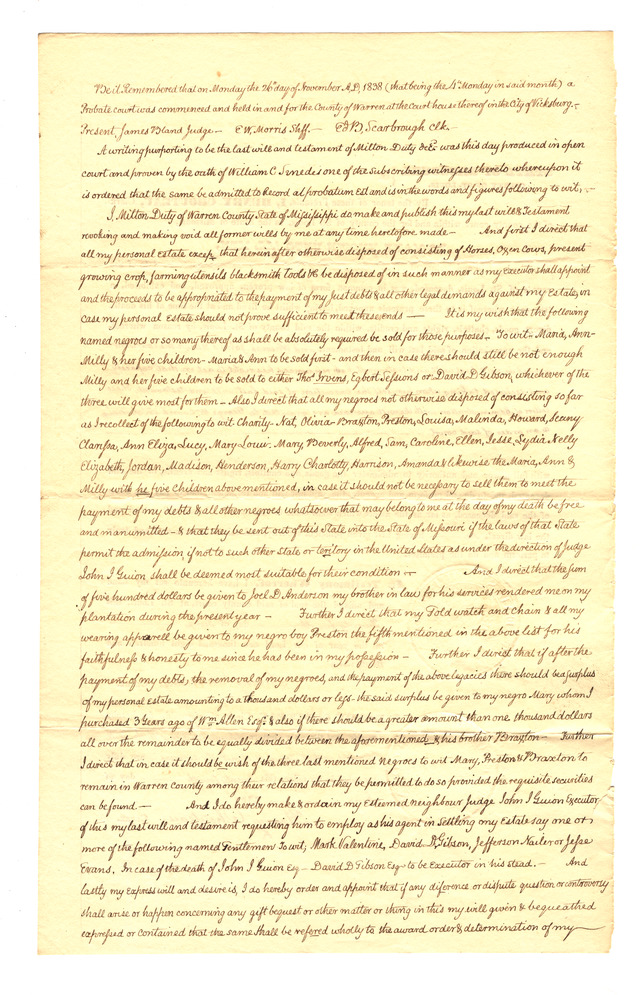 Be it Remembered that on Monday the 26th day of November A.D, 1838 (that being the 4th Monday in said month) a
Probate court was commenced and held in and for the County of Warren at the Court house thereof in the City of Vicksburg.
Present, James Bland Judge — E W. Morris Shff — Ed D, Scarbrough Clk.
A writing purporting to be the last will and testament of Milton Duty & was this day produced in open
court and proven by the oath of William C Smedes one of the Subscribing witnesses thereto whereupon it
is ordered that the same be admitted to Record as probatum Est and is in the words and figures following to wit,
I, Milton Duty of Warren County State of Mississippi do make and publish this my last will & Testament
revoking and making void all former wills by me at any time heretofore made — And first I direct that
all my personal estate except that herein after otherwise disposed of consisting of Horses, Oxen Cows, present
growing crop, farming utensils blacksmith tools &c be disposed of in such manner as my executor shall appoint
and the proceeds to be appropriated to the payment of my just debts & all other legal demands against my Estate, in
case my personal Estate should not prove sufficient to meet these, ends — It is my wish that the following
named negroes or so many thereof as shall be absolutely required be sold for those purposes — To wit — Maria, Ann —
Milly & her five children — Maria & Ann to be sold first — and then in case there should still be not enough
Milly and her five children to be sold to either Thos Irvens, Egbert Sessions or David D Gibson, whichever of the
three will give most for them — Also I direct that all my negroes not otherwise disposed of consisting so far
as I recollect of the following to wit Charity — Nat, Olivia — Braxton, Preston, Louisa, Malinda, Howard,
Clarissa, Ann Eliza, Lucy, Mary Mary, Beverly, Alfred, Sam, Caroline, Ellen, Jesse, Lydia Nelly
Elizabeth, Jordan, Madison, Henderson, Harry Charlotty, Harrison, Amanda & likewise the Maria, Ann &
Milly with he five Children above mentioned, in case it should not be necessary to sell them to meet the
payment of my debts & all other negroes whatsoever that may belong to me at the day of my death be free
and manumitted — & that they be sent out of this State into the State of Missouri if the laws of that State
permit the admission, if not to such other state or teritory in the United States as under the direction of Judge
John I Guion shall be deemed most suitable for their condition — And I direct that the sum
of five hundred dollars be given to Joel D Anderson my brother in law for his services rendered me on my
plantation during the present year — Further I direct that my Gold watch and chain & all my
wearing apparell be given to my negro boy Preston the fifth mentioned in the above list for his
faithfulness & honesty to me since he has been in my possession — Further I direct that if after the
payment of my debts, the removal of my negroes, and the payment of the above legacies there should be a surplus
of my personal Estate amounting to a thousand dollars or less — the said surplus be given to my negro Mary whom I
purchased 3 Years ago of Wm Allen Esqr & also if there should be a greater amount than one thousand dollars
all over the remainder to be equally divided between the aforementioned & his brother Braxton — Further
I direct that in case it should be wish of the three last mentioned Negroes to wit Mary, Preston & Braxton to
remain in Warren County among their relations that they be permitted to do so provided the requisite securities
can be found. — And I do hereby make & ordain my Esteemed neighbour Judge John I Guion Executor
of this my last will and testament requesting him to employ as his agent in Settling my Estate say one or
more of the following named Gentlemen to wit, Mark Valentine, David D, Gibson, Jefferson Nailer or Jesse
Evans. In case of the death of John I Guion Esq — David D Gibson Esqr to be Executor in his stead. — And
lastly my express will and desire is, I do hereby order and appoint that if any diference or dispute question or controversy
shall arise or happen concerning any gift bequest or other matter or thing in this my will given & bequeathed
expressed or contained that the same shall be refered wholly to the award order & determination of my —